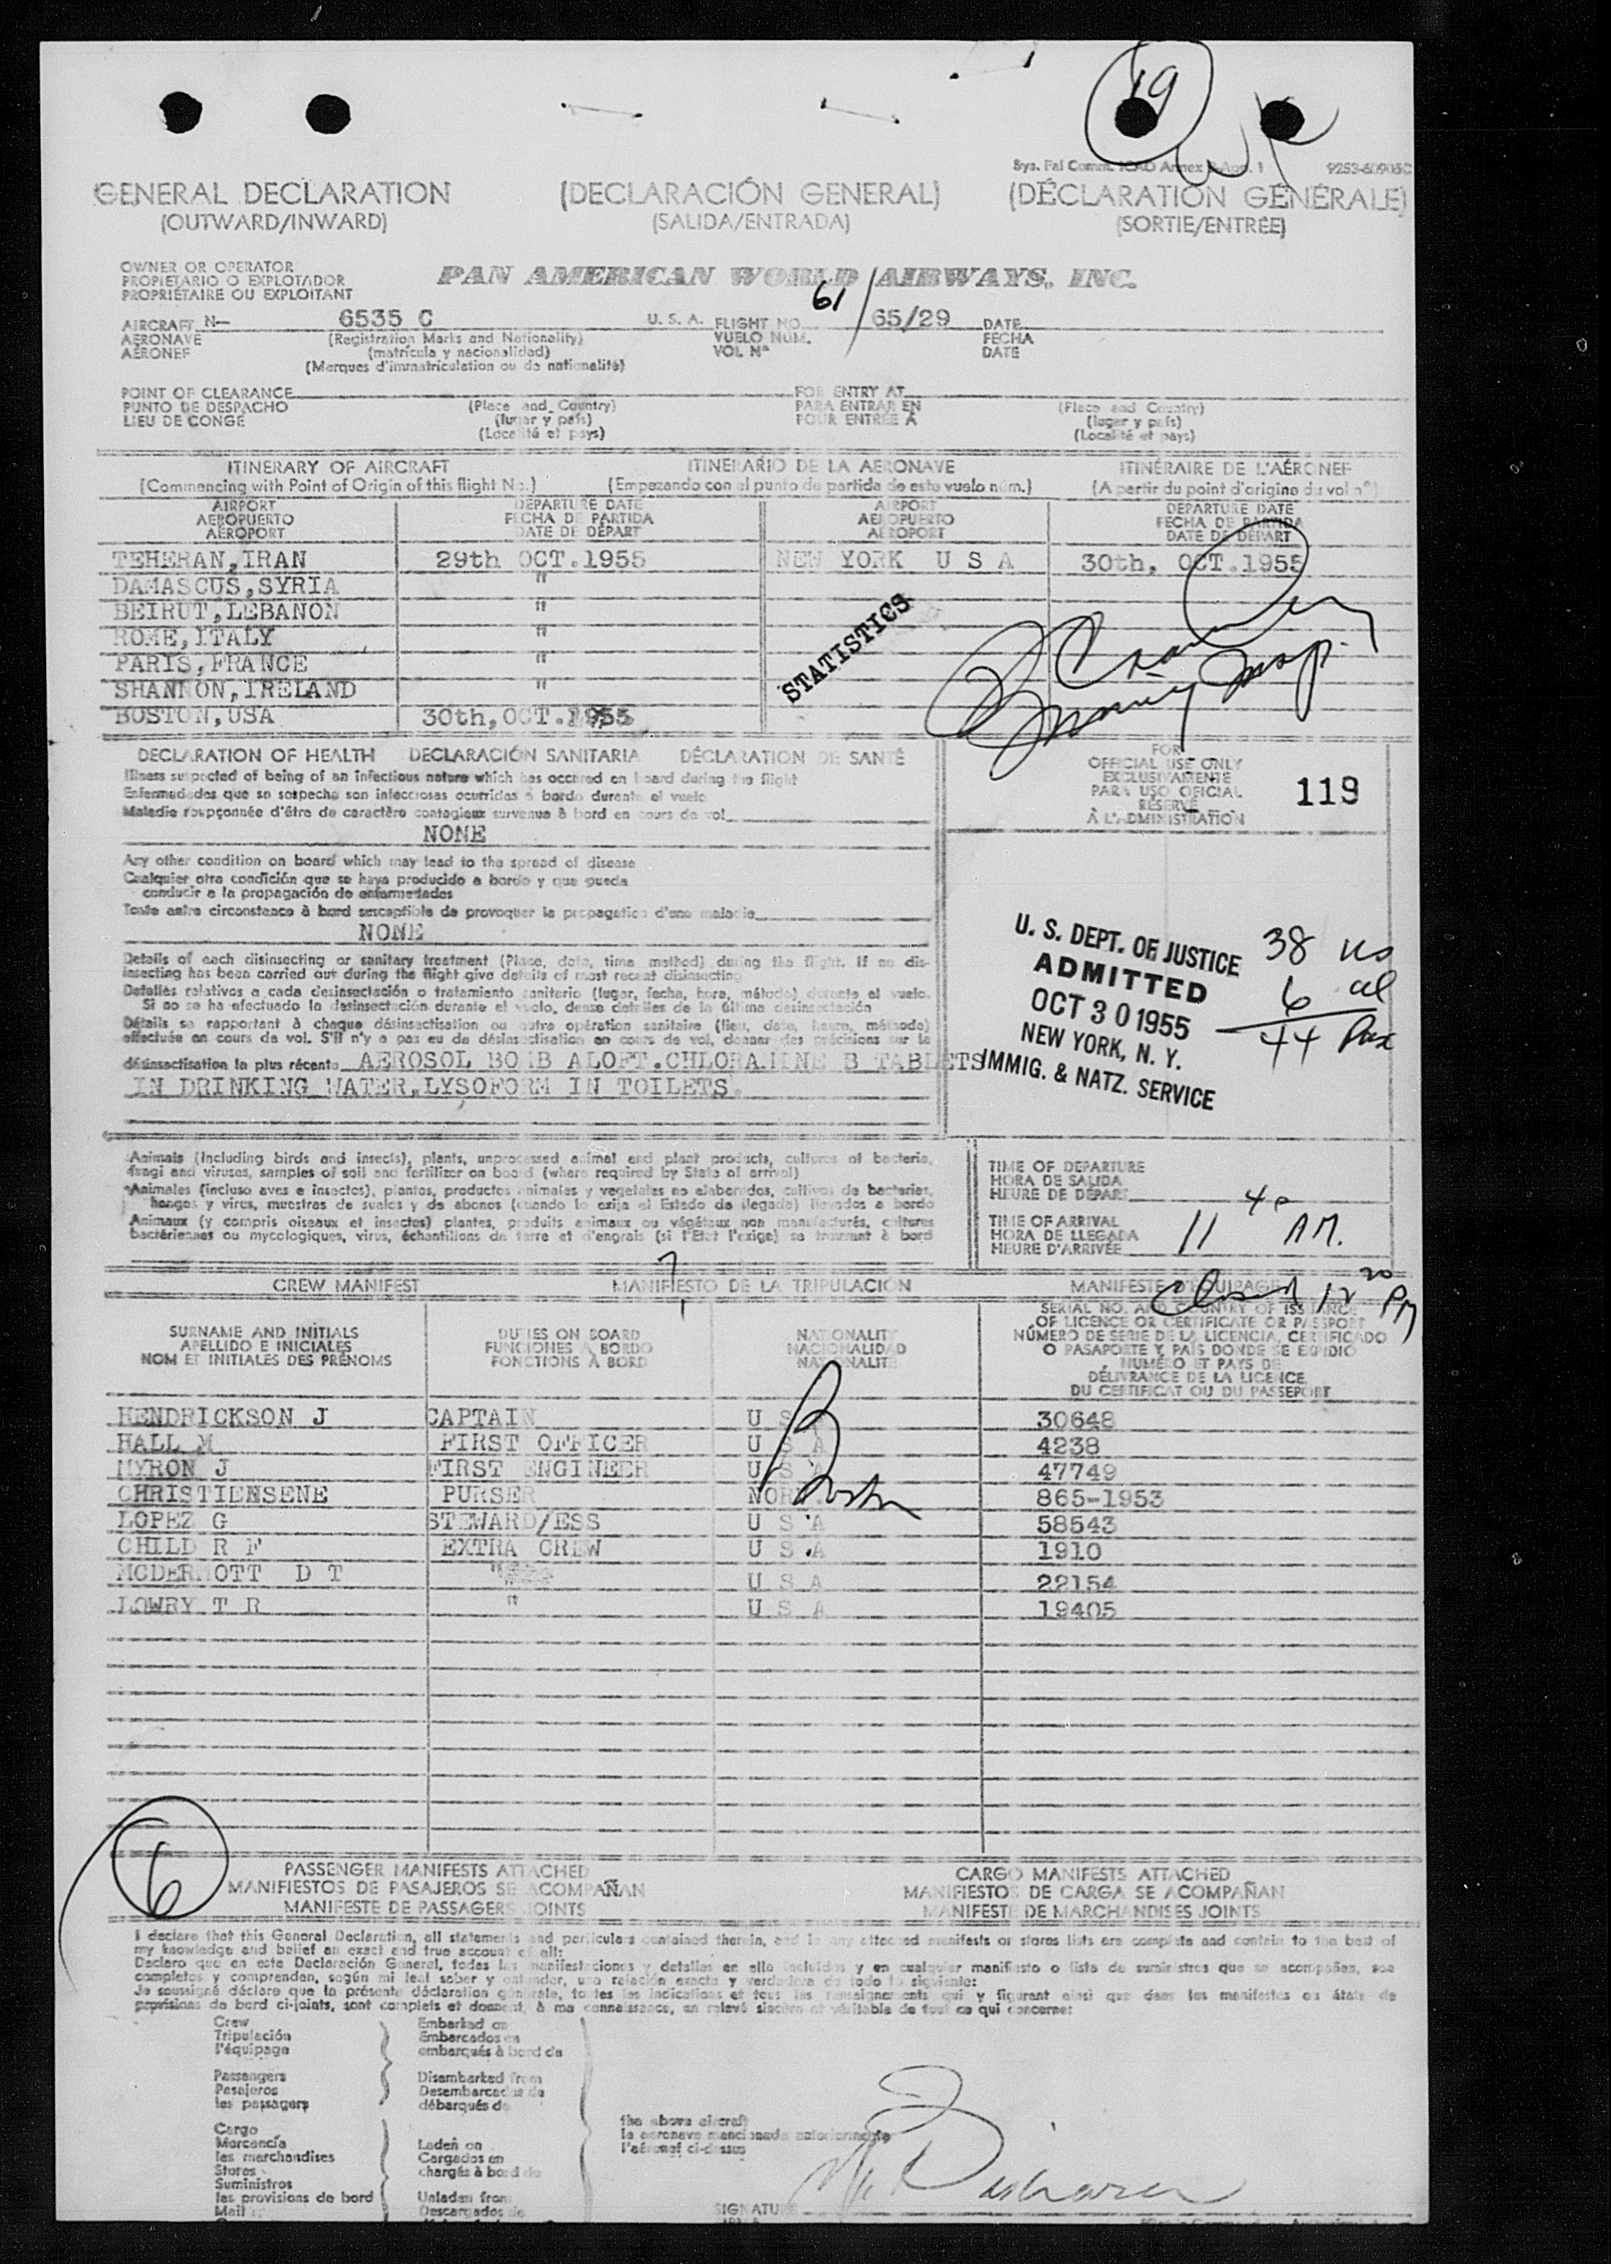 19
Sys. Fal Comm. ICAO Annex 9 App. 1 9253-60905C
GENERAL DECLARATION (DECLARACIÓN GENERAL) (DÉCLARATION GÉNÉRALE)
(OUTWARD/INWARD) (SALIDA/ENTRADA) (SORTIE/ENTRÉE)
OWNER OR OPERATOR
PROPIETARIO O EXPLOTADOR PAN AMERICAN WORLD AIRWAYS, INC.
PROPRIÉTAIRE OU EXPLOITANT
61/
AIRCRAFT N- 6535 C U. S. A. FLIGHT NO. 65/29 DATE
AERONAVE (Registration Marks and Nationality) VUELO NUM. FECHA
AÉRONEF (matrícula y nacionalidad) VOL Nº DATE
(Marques d'immatriculation ou de nationalité)
POINT OF CLEARANCE FOR ENTRY AT
PUNTO DE DESPACHO (Place and Country) PARA ENTRAR EN (Place and Country)
LIEU DE CONGÉ (lugar y país) POUR ENTRÉE À (lugar y país)
(Localité et pays) (Localité et pays)
ITINERARY OF AIRCRAFT ITINERARIO DE LA AERONAVE ITINÉRAIRE DE L'AÉRONEF
(Commencing with Point of Origin of this flight No.) (Empezando con el punto de partida de este vuelo núm.) (A partir du point d'origine du vol nº)
AIRPORT DEPARTURE DATE AIRPORT DEPARTURE DATE
AEROPUERTO FECHA DE PARTIDA AEROPUERTO FECHA DE PARTIDA
AÉROPORT DATE DE DÉPART AÉROPORT DATE DE DÉPART
TEHERAN,IRAN 29th OCT.1955 NEW YORK U S A 30th, OCT.1955
DAMASCUS,SYRIA "
BEIRUT,LEBANON "
ROME,ITALY "
PARIS,FRANCE "
SHANNON,IRELAND "
BOSTON,USA 30th,OCT.1955
STATISTICS
DECLARATION OF HEALTH DECLARACIÓN SANITARIA DÉCLARATION DE SANTÉ
Illness suspected of being of an infectious nature which has occured on board during the flight
Enfermedades que se sospecha son infecciosas ocurridas a bordo durante el vuelo
Maladie soupçonnée d'être de caractère contagieux survenue à bord en cours de vol
NONE
FOR
OFFICIAL USE ONLY
EXCLUSIVAMENTE
PARA USO OFICIAL
RÉSERVÉ
À L'ADMINISTRATION
119
Any other condition on board which may lead to the spread of disease
Cualquier otra condición que se haya producido a bordo y que pueda
conducir a la propagación de enfermedades
Toute autre circonstance à bord susceptible de provoquer la propagation d'une maladie
NONE
Details of each disinsecting or sanitary treatment (Place, date, time method) during the flight. If no dis-
insecting has been carried out during the flight give details of most recent disinsecting
Detalles relativos a cada desinsectación o tratamiento sanitario (lugar, fecha, hora, método) durante el vuelo.
Si no se ha efectuado la desinsectación durante el vuelo, dense detalles de la última desinsectación
Détails se rapportant à chaque désinsectisation ou autre opération sanitaire (lieu, date, heure, méthode)
effectuée en cours de vol. S'il n'y a pas eu de désinsectisation en cours de vol, donner des précisions sur la
désinsectisation la plus récente AEROSOL BOMB ALOFT.CHLORAMINE B TABLETS
IN DRINKING WATER,LYSOFORM IN TOILETS.
U. S. DEPT. OF JUSTICE
ADMITTED
OCT 30 1955
NEW YORK, N. Y.
IMMIG. & NATZ. SERVICE
38 us
6 al
44 Pax
Animals (including birds and insects), plants, unprocessed animal and plant products, cultures of bacteria,
fungi and viruses, samples of soil and fertilizer on board (where required by State of arrival)
Animales (incluso aves e insectos), plantas, productos animales y vegetales no elaborados, cultivos de bacterias,
hongos y virus, muestras de suelos y de abonos (cuando lo exija el Estado de llegada) llevados a bordo
Animaux (y compris oiseaux et insectes) plantes, produits animaux ou végétaux non manufacturés, cultures
bactériennes ou mycologiques, virus, échantillons de terre et d'engrais (si l'Etat l'exige) se trouvant à bord
TIME OF DEPARTURE
HORA DE SALIDA
HEURE DE DÉPART
TIME OF ARRIVAL
HORA DE LLEGADA 11 40 AM.
HEURE D'ARRIVÉE
7
CREW MANIFEST MANIFIESTO DE LA TRIPULACIÓN MANIFESTE D'ÉQUIPAGE
closed 12 20 PM
SURNAME AND INITIALS DUTIES ON BOARD NATIONALITY
APELLIDO E INICIALES FUNCIONES A BORDO NACIONALIDAD
NOM ET INITIALES DES PRÉNOMS FONCTIONS À BORD NATIONALITÉ
SERIAL NO. AND COUNTRY OF ISSUANCE
OF LICENCE OR CERTIFICATE OR PASSPORT
NÚMERO DE SERIE DE LA LICENCIA, CERTIFICADO
O PASAPORTE Y PAÍS DONDE SE EXPIDIÓ
NUMÉRO ET PAYS DE
DÉLIVRANCE DE LA LICENCE,
DU CERTIFICAT OU DU PASSEPORT
HENDRICKSON J CAPTAIN U S A 30648
HALL M FIRST OFFICER U S A 4238
MYRON J FIRST ENGINEER U S A 47749
CHRISTIENSENE PURSER NOR 865-1953
LOPEZ G STEWARD/ESS U S A 58543
CHILD R F EXTRA CREW U S A 1910
MCDERMOTT D T " U S A 22154
LOWRY T R " U S A 19405
Boston
6
PASSENGER MANIFESTS ATTACHED CARGO MANIFESTS ATTACHED
MANIFIESTOS DE PASAJEROS SE ACOMPAÑAN MANIFIESTOS DE CARGA SE ACOMPAÑAN
MANIFESTE DE PASSAGERS JOINTS MANIFESTE DE MARCHANDISES JOINTS
I declare that this General Declaration, all statements and particulars contained therein, and in any attached manifests or stores lists are complete and contain to the best of
my knowledge and belief an exact and true account of all:
Declaro que en esta Declaración General, todas las manifestaciones y detalles en ella incluidos y en cualquier manifiesto o lista de suministros que se acompañan, son
completos y comprenden, según mi leal saber y entender, una relación exacta y verdadera de todo lo siguiente:
Je soussigné déclare que la présente déclaration générale, toutes les indications et tous les renseignements qui y figurent ainsi que dans les manifestes ou états de
provisions de bord ci-joints, sont complets et donnent, à ma connaissance, un relevé sincère et véritable de tout ce qui concerne:
Crew Embarked on
Tripulación Embarcados en
l'équipage embarqués à bord de
Passengers Disembarked from
Pasajeros Desembarcados de
les passagers débarqués de
the above aircraft
la aeronave mencionada anteriormente
l'aéronef ci-dessus
Cargo
Mercancía Laden on
les marchandises Cargados en
Stores chargés à bord de
Suministros
les provisions de bord Unladen from
Mail Descargados de
SIGNATURE